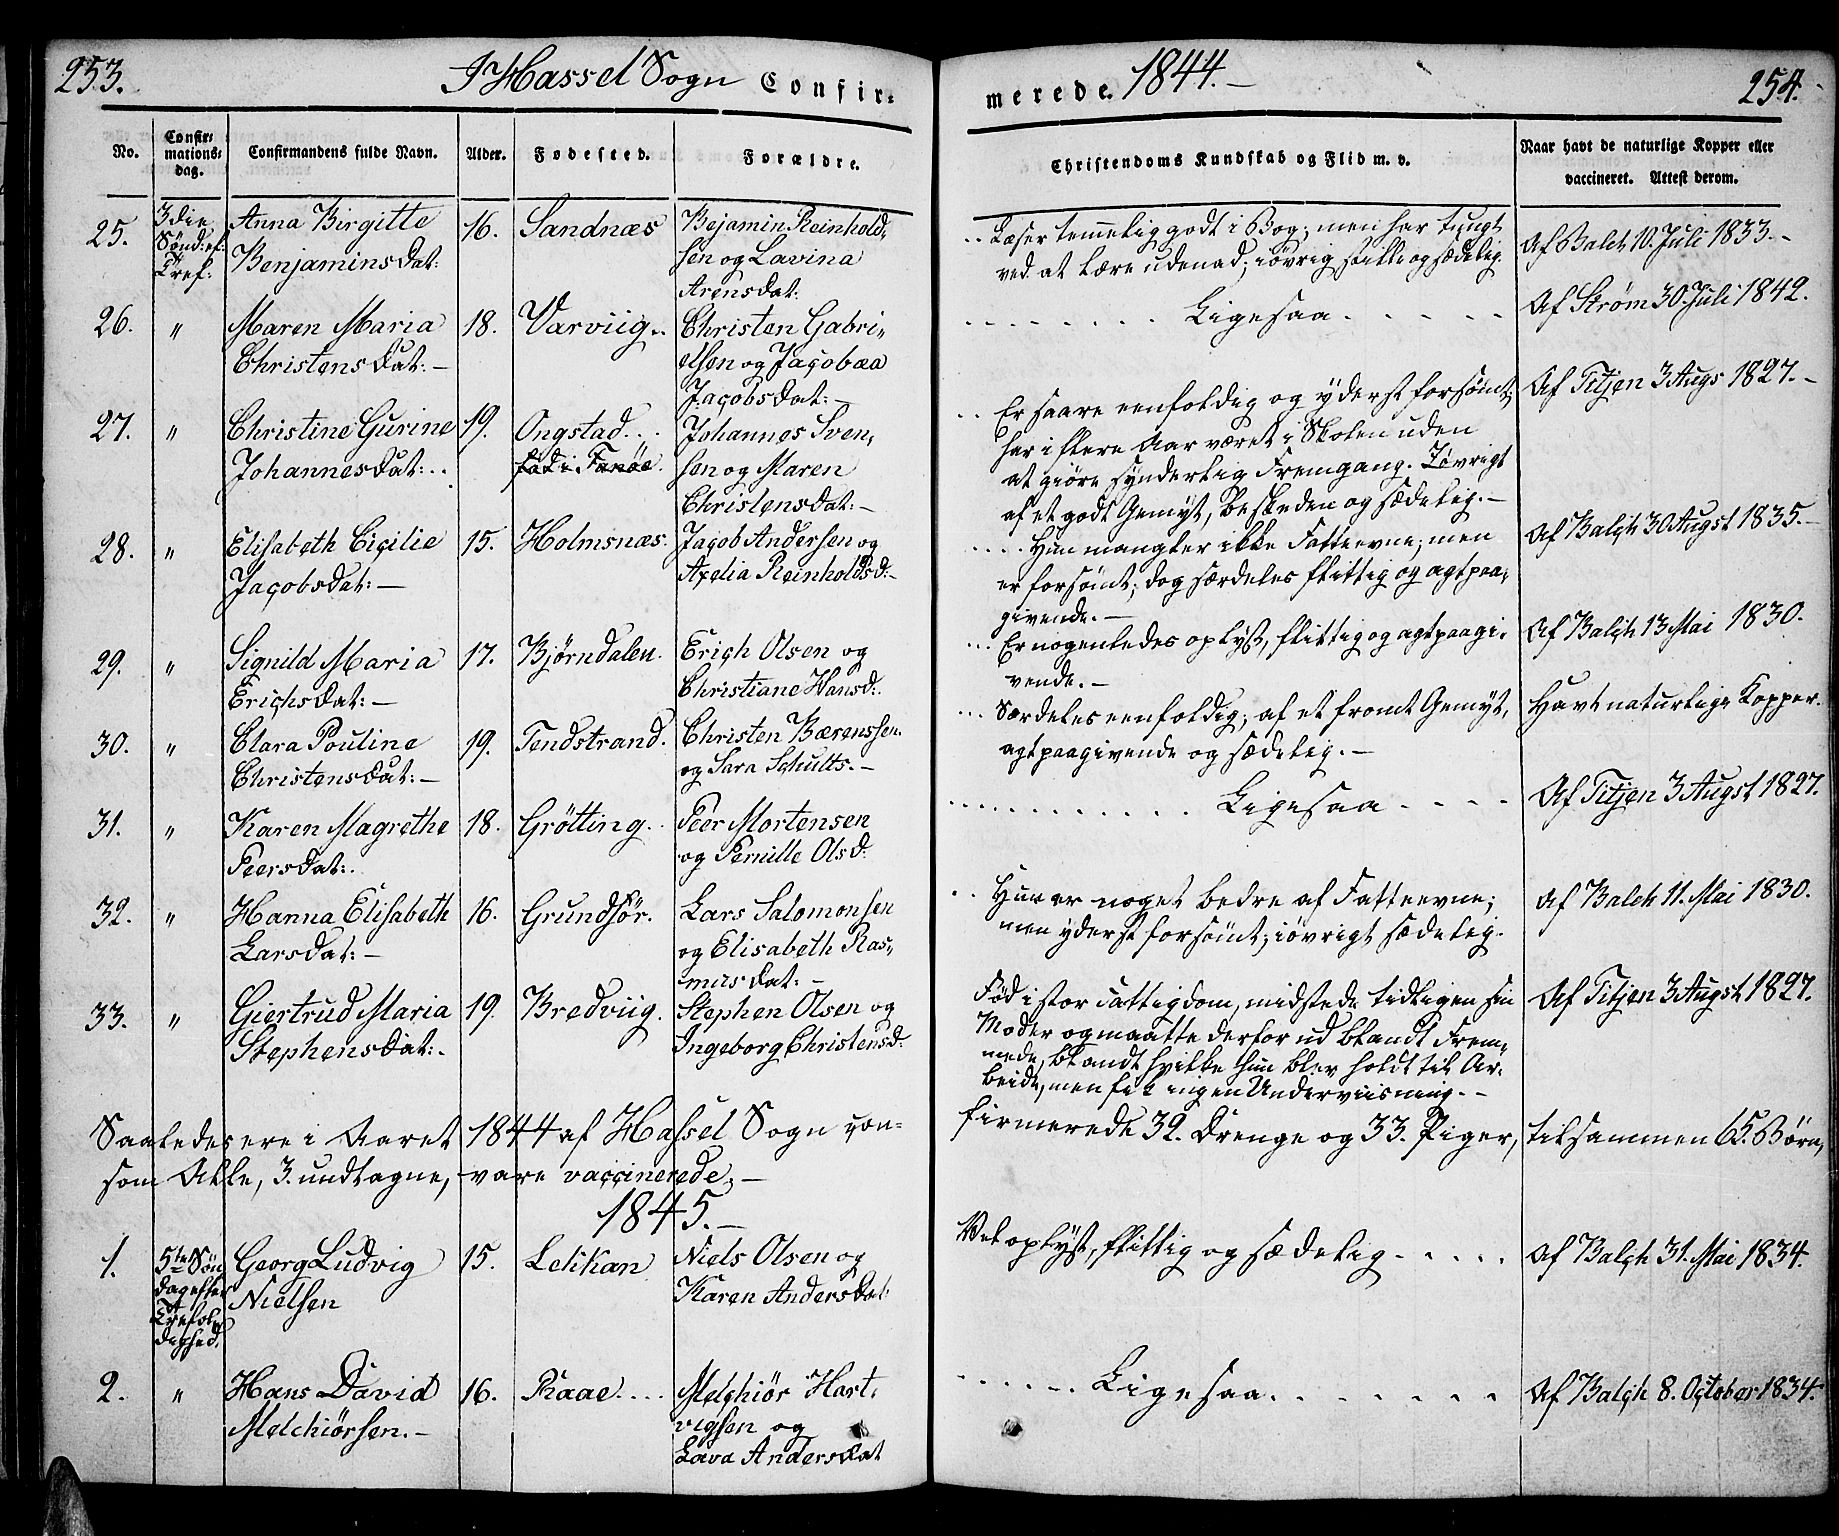 253.
I Hassel Sogn Confir-
merede. 1844.-
254.
No.
Confir-
mations-
dag.
Confirmandens fulde Navn.
Alder.
Fødested.
Forældre.
Christendoms Kundskab og Flid m. v.
Naar havt de naturlige Kopper eller
vaccineret. Attest derom.
25. 3die Anna Birgitte 16. Sandnæs Bejamin Reinhold-
Sønd: ef: Benjaminsdat: sen og Lavina
Tref: Arensdat:
Læser temmelig godt i Bog; men har tungt
ved at lære udenad; iøvrig stille og sædelig.
Af Balch 10. Juli 1833.-
26. " Maren Maria 18. Varviig.. Christen Gabri-
Christensdat:- elsen og Jacobæa
Jacobsdat:-
Ligesaa
Af Strøm 30. Juli 1842.
27. " Christine Gurine 19. Ongstad... Johannes Sven-
Johannesdat:.. fød i Fanøe. sen og Maren
Christensdat:-
Er saare eenfoldig og yderst forsømt,
har i flere Aar været i Skolen uden
at giøre synderlig Fremgang. Iøvrigt
af et godt Gemyt, beskeden og sædelig.-
Af Titjen 3 Augs 1827.-
28. " Elisabeth Cicilie 15. Holmsnæs. Jacob Andersen og
Jacobsdat:- Axelia Reinholdsd:-
Hun mangler ikke Fatteevne; men
er forsømt; dog særdeles flittig og agtpaa-
givende.-
Af Balch 30 Augst 1835.-
29. " Signild Maria 17. Bjørndalen. Erich Olsen og
Erichsdat:- Christiane Hansd:
Er nogenledes oplyst, flittig og agtpaagi-
vende.-
Af Balch 13 Mai 1830.
30. " Clara Pouline 19. Tendstrand. Christen Bærenssen.
Christensdat:- og Sara Schults.-
Særdeles eenfoldig; af et fromt Gemyt,
agtpaagivende og sædelig.-
Havt naturlige Kopper.
31. " Karen Magrethe 18. Grøtting.. Peer Mortensen
Peersdat:. og Pernille Olsd:
Ligesaa
Af Titjen 3 Augst 1827.
32. " Hanna Elisabeth 16. Grundsør. Lars Salomonsen
Larsdat:- og Elisabeth Ras-
musdat:-
Hun er noget bedre af Fatteevne;
men yderst forsømt; iøvrigt sædelig.
Af Balch 11. Mai 1830.
33. " Giertrud Maria 19. Bredviig. Stephen Olsen og
Stephensdat:. Ingeborg Christensd:
Fød i stor Fattigdom, midstede tidligen sin
Moder og maatte derfor ud blandt Frem-
mede, blandt hvilke hun blev holdt til Ar-
beide, men fik ingen Underviisning.-
Af Titjen 3 Augst 1827.
Saaledes ere i Aaret 1844 af Hassel Sogn con-
firmerede 32. Drenge og 33. Piger, tilsammen 65. Børn,
som Alle, 3. undtagne, vare vaccinerede.-
1845.-
1. 5te Søn Georg Ludvig 15. Lekkan Niels Olsen og
dag efter Nielsen Karen Andersdat
Trefol
dighed.
Vel oplyst, flittig og sædelig
Af Balch 31. Mai 1834.
2. " Hans David 16. Raae.... Melchiør Hart-
Melchiørsen.- vigsen og
Lava Andersdat
Ligesaa
Af Balch 8. October 1834.